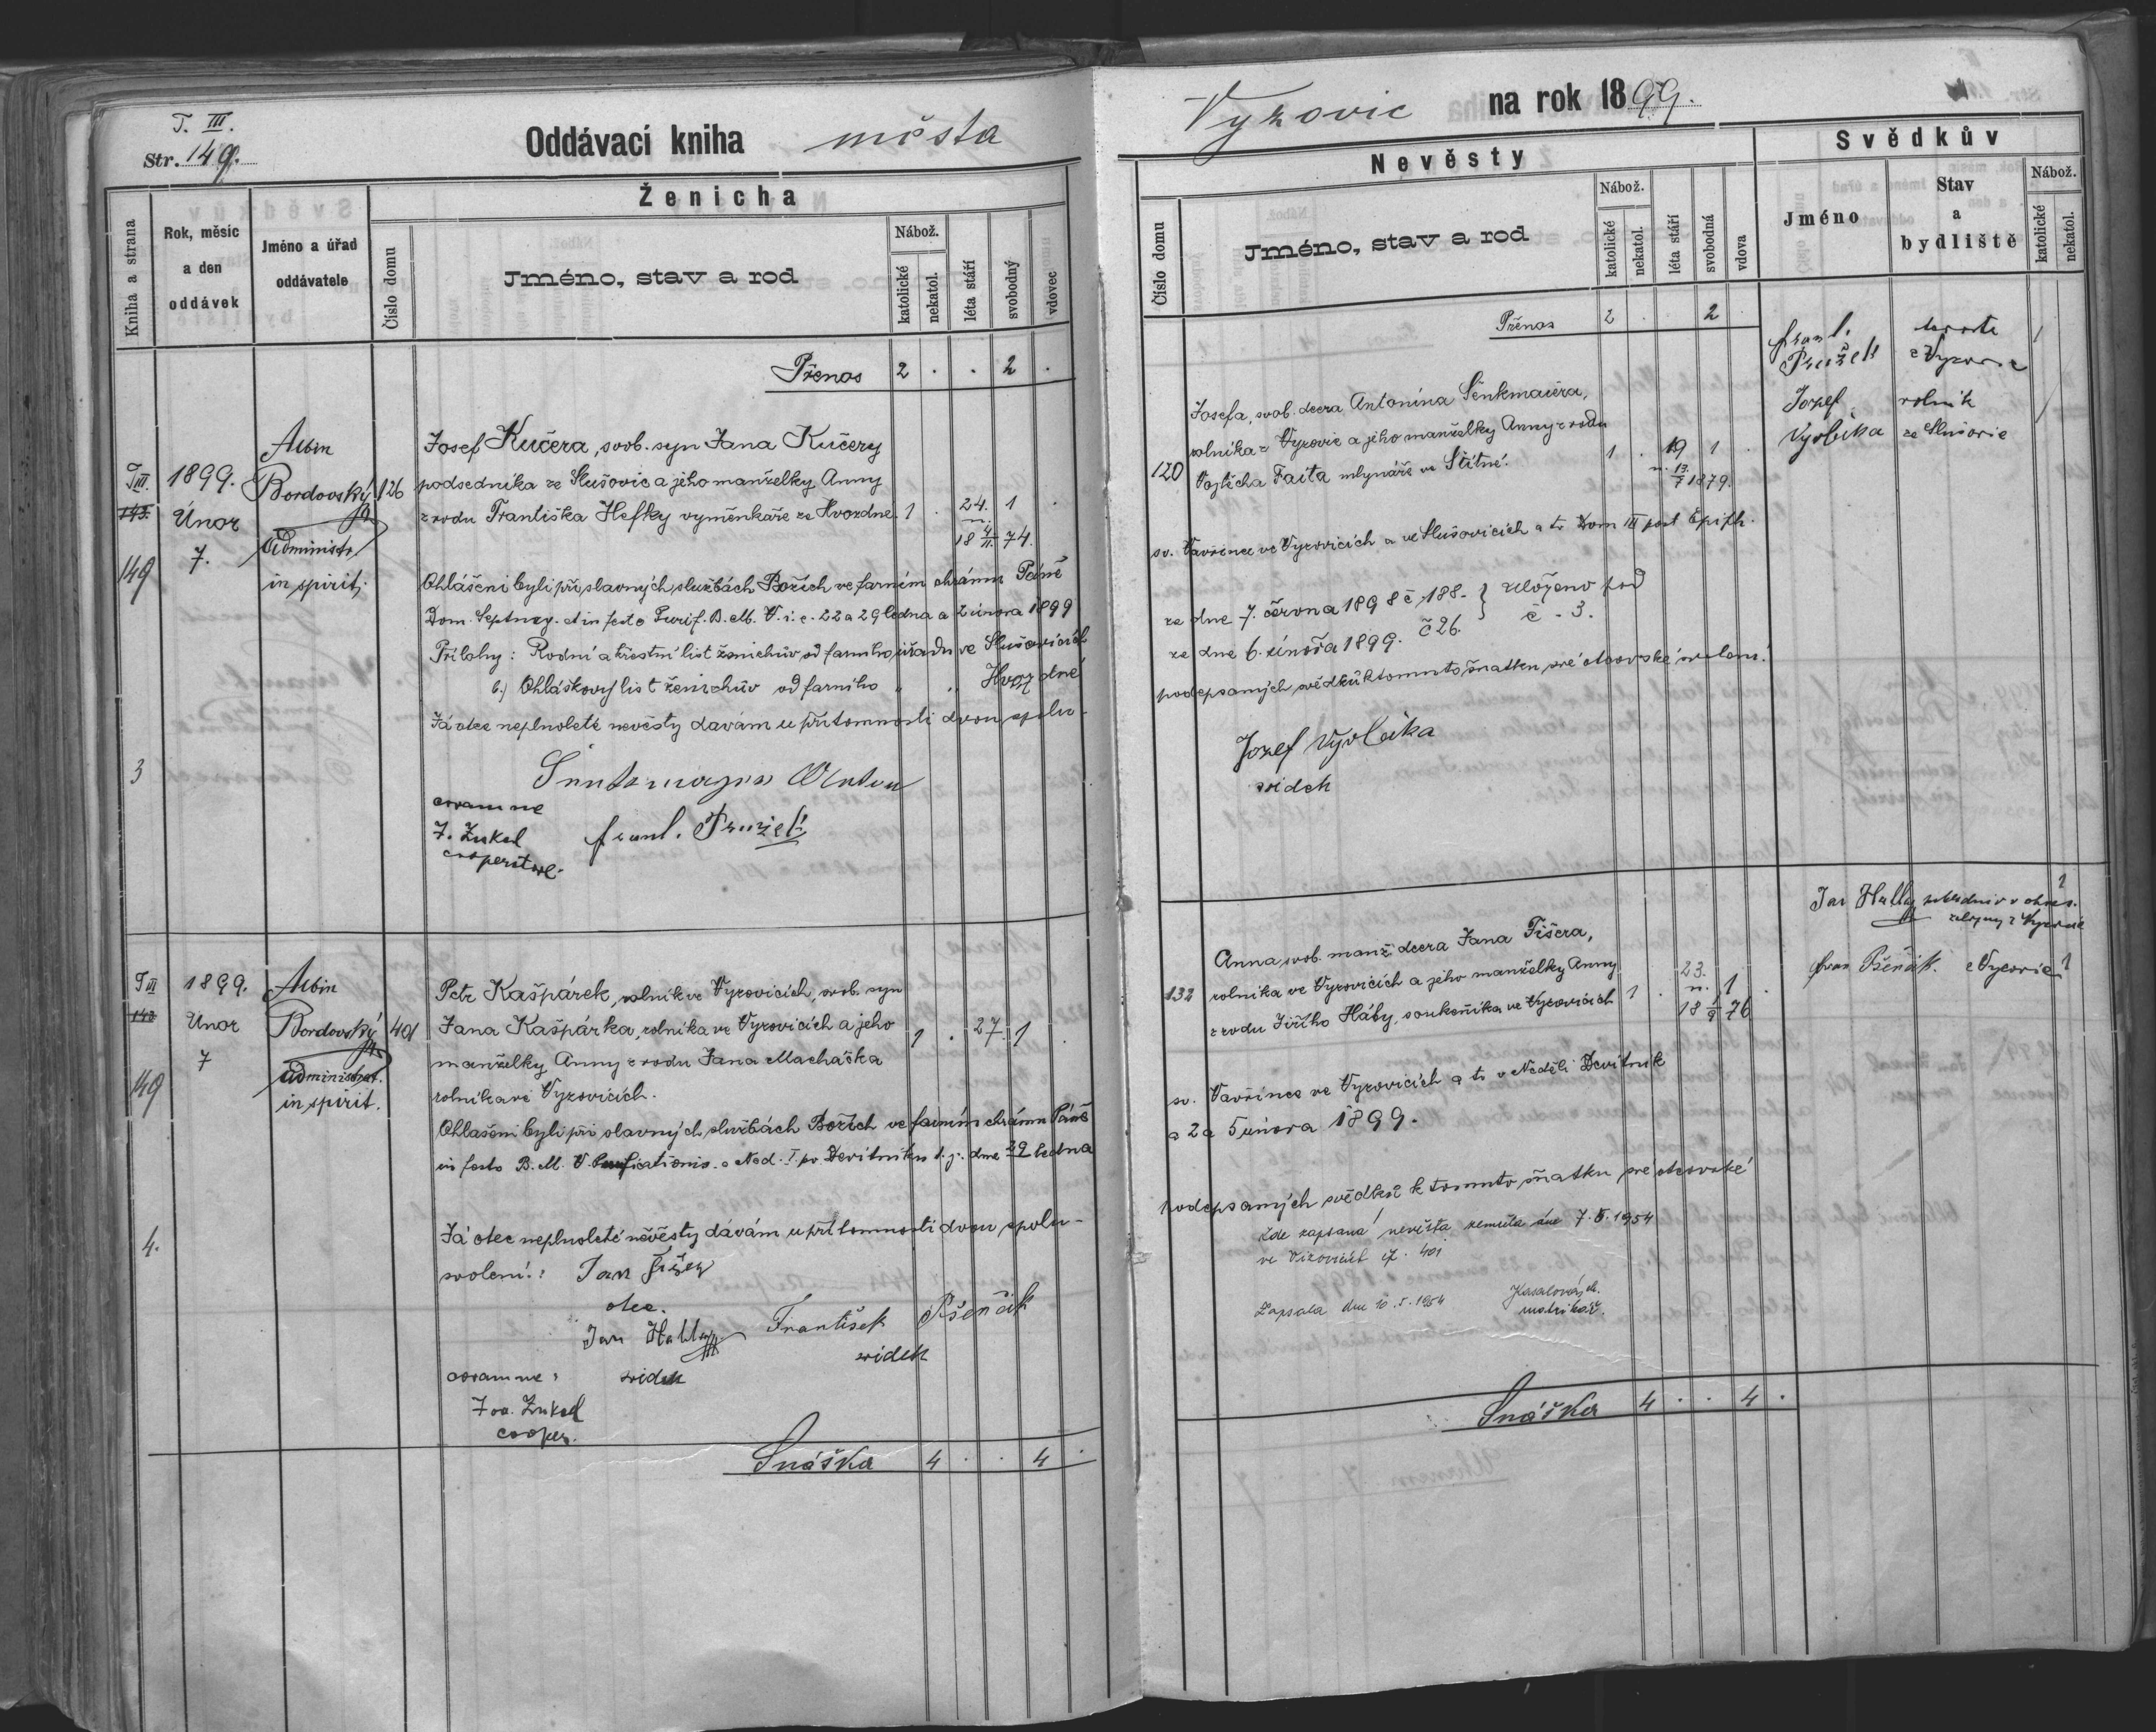 T. III.
Str. 149.
Oddávací kniha města
Kniha a strana
Rok, měsíc a den oddávek
Jméno a úřad oddávatele
Číslo domu
Ženicha
Jméno, stav a rod
Nábož.
katolické
nekatol.
léta stáří
svobodný
vdovec
Přenos 2 . . 2 .
T III. 149
1899. Únor 7.
Albin Bordovský
Administr. in spirit.
126
Josef Kučera, svob. syn Jana Kučery
podsedníka ze Slušovic a jeho manželky Anny
z rodu Františka Hefky vyměnkáře ze Hvozdné. 1 . 24. 1 .
n. 18 74.
Ohlášeni byli při slavných službách Božích ve farním chrámu Páně
Dom. Septuag. et in festo Purif. B. M. V. i. e. 22 a 29 ledna a 2 února 1899
Přílohy: Rodní a křestní list ženichův od farního úřadu ve Slušovicích
b.) Ohláškový list ženichův od farního " " Hvozdné
Já otec neplnoleté nevěsty dávám u přítomnosti dvou spolu-
3
coram me
J. Zukal
cooperatore.
Frant. Pružek
T III 149
1899. Únor 7
Albin Bordovský
administrat.
in spirit.
401
Petr Kašpárek, rolník ve Vyzovicích, svob. syn
Jana Kašpárka, rolníka ve Vyzovicích a jeho 1 . 27. 1 .
manželky Anny z rodu Jana Macháčka
rolníka ve Vyzovicích.
Ohlášeni byli při slavných službách Božích ve farním chrámu Páně
in festo B. M. V. Purificationis. a Ned. I. po Devítníku t. j. dne 29 ledna
4.
Já otec neplnoleté nevěsty dávám u přítomnosti dvou spolu-
svolení.: Jan Fišer
otec.
Jan Habla František Pšenčik
svidek
coram me: svidek
Jos. Zukal
cooper.
Snáška 4 . . 4 .
Vyzovic na rok 1899.
Nevěsty
Svědkův
Číslo domu
Jméno, stav a rod
Nábož.
katolické
nekatol.
léta stáří
svobodná
vdova
Jméno
Stav a bydliště
Nábož.
katolické
nekatol.
Přenos 2 . . 2
Frant. Pružek z Vyzovic 1
Jozef Vyvlečka rolník ze Slušovic
120
Josefa, svob. dcera Antonína Šenkmaiera,
rolníka z Vyzovic a jeho manželky Anny z rodu 1 . 19 1 .
Vojtěcha Faita mlynáře ve Štítné. n. 1879.
sv. Vavřince ve Vyzovicích a ve Slušovicích a to Dom III post Epiph.
ze dne 7. června 1898 č. 188. } uloženo pod
ze dne 6. února 1899. č 26. č. 3.
podepsaných svědků k tomuto sňatku své otcovské svolení.
Jozef Vyvlečka
svidek
132
Anna, svob. manž. dcera Jana Fišera,
rolníka ve Vyzovicích a jeho manželky Anny 23. n.
z rodu Jiřího Háby, soukeníka ve Vyzovicích 1 . 18 76 1 .
Jan z Vyzovic 1
Fran Pšenčik. z Vyzovic 1
sv. Vavřince ve Vyzovicích a to v Neděli Devítník
a 2 a 5 února 1899.
podepsaných svědků k tomuto sňatku své otcovské
Zde zapsaná nevěsta zemřela dne 7. 5. 1954
ve Vizovicích čp. 401
Zapsala dne 10. 5. 1954
matrikář.
Snáška 4 . . 4 .